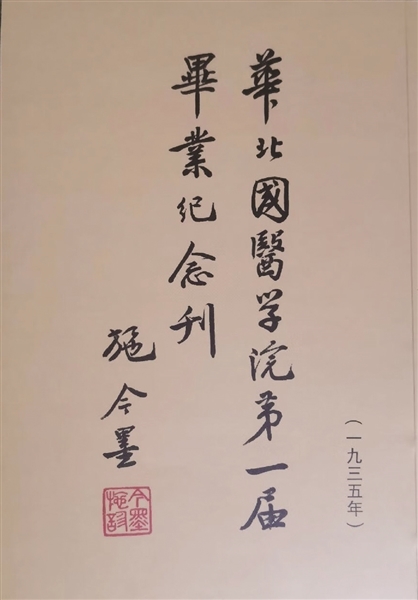 華北國醫学院第一届
畢業纪念刊
施今墨
(一九三五年)